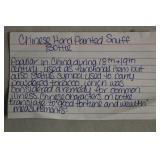 Chinese Hand Painted Snuff
Bottle
Popular in China during 18th + 19th
century used as functional item but
also status symbol used to carry
powdered tobacco, which was
considered a remedy for common
illness. Chinese characters on bottle
translate to good fortune and wealth.
measurements: